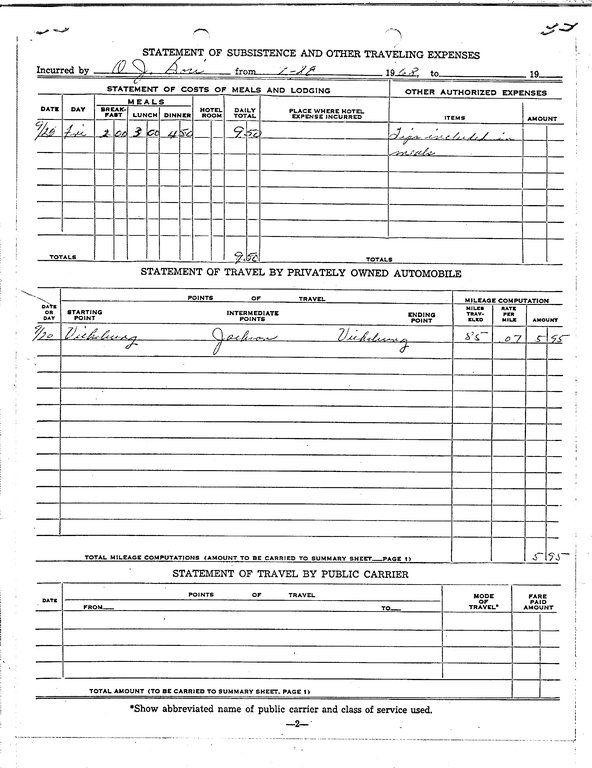 STATEMENT OF SUBSISTENCE AND OTHER TRAVELING EXPENSES
Incurred by O. J. from 1968 to 19
STATEMENT OF COSTS OF MEALS AND LODGING OTHER AUTHORIZED EXPENSES
DATE DAY MEALS BREAK-FAST LUNCH DINNER HOTEL ROOM DAILY TOTAL PLACE WHERE HOTEL EXPENSE INCURRED ITEMS AMOUNT
9/20 Fri 2 00 3 00 4 50 9.50 Tips included in
meals
TOTALS 9.50 TOTALS
STATEMENT OF TRAVEL BY PRIVATELY OWNED AUTOMOBILE
POINTS OF TRAVEL MILEAGE COMPUTATION
DATE OR DAY STARTING POINT INTERMEDIATE POINTS ENDING POINT MILES TRAV-ELED RATE PER MILE AMOUNT
9/20 Vicksburg Jackson Vicksburg 85 .07 5 95
TOTAL MILEAGE COMPUTATIONS (AMOUNT TO BE CARRIED TO SUMMARY SHEET—PAGE 1) 5 95
STATEMENT OF TRAVEL BY PUBLIC CARRIER
DATE POINTS OF TRAVEL MODE OF TRAVEL* FARE PAID AMOUNT
FROM— TO—
TOTAL AMOUNT (TO BE CARRIED TO SUMMARY SHEET, PAGE 1)
*Show abbreviated name of public carrier and class of service used.
—2—